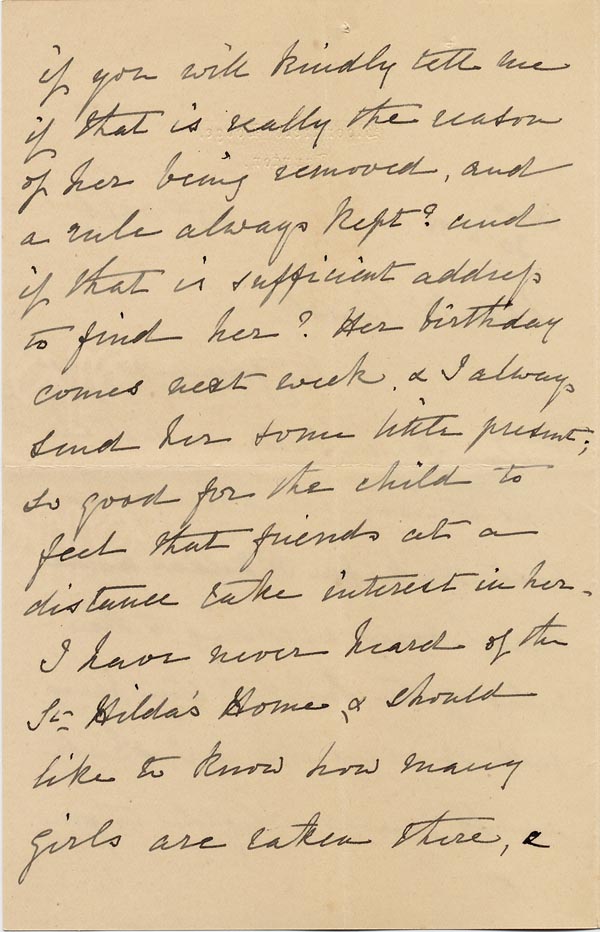 if you will kindly tell me
if that is really the reason
of her being removed, and
a rule always kept? and
if that is sufficient address
to find her? Her birthday
comes next week, & I always
send her some little present;
so good for the child to
feel that friends at a
distance take interest in her.
I have never heard of the
St Hilda's Home, & should
like to know how many
girls are taken there, &